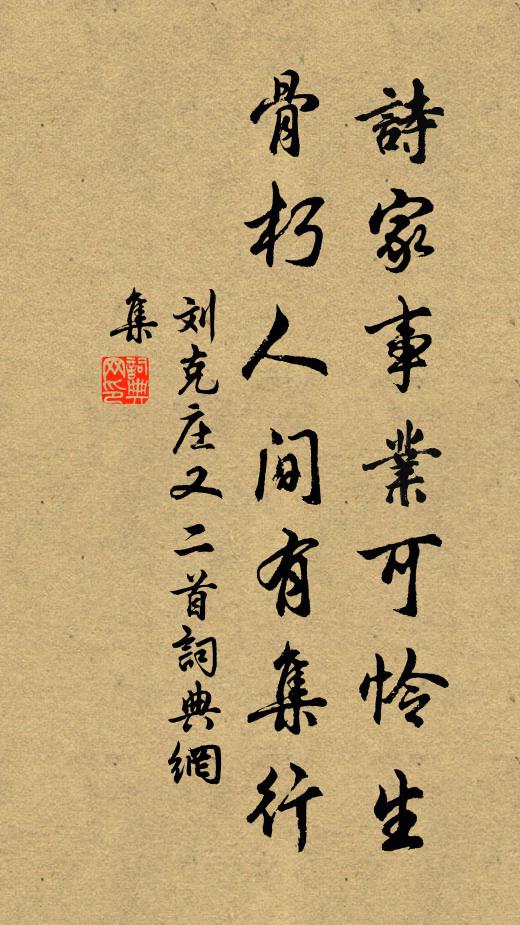 詩家事業可怜生
骨朽人间有集行
刘克庄又二首詞典網
集
詞典
网印